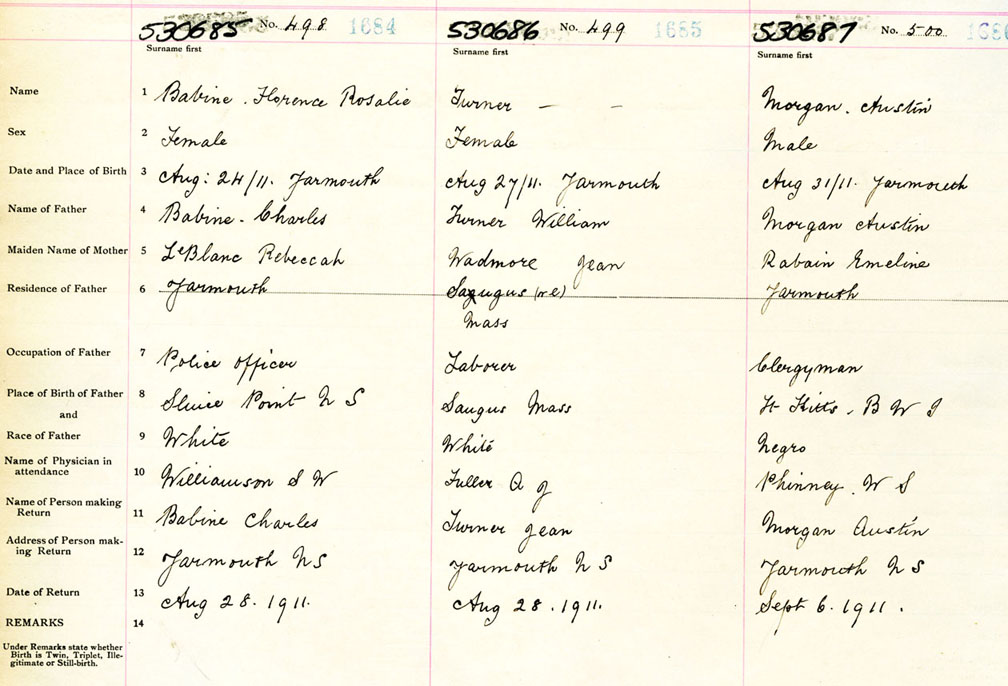 530685 No. 498 1684 530686 No. 499 1685 530687 No. 500
Surname first Surname first Surname first
Name 1 Babine. Florence Rosalie Turner — — Morgan. Austin
Sex 2 Female Female Male
Date and Place of Birth 3 Aug: 24/11. Yarmouth Aug 27/11. Yarmouth Aug 31/11. Yarmouth
Name of Father 4 Babine - Charles Turner William Morgan Austin
Maiden Name of Mother 5 LeBlanc Rebeccah Wadmore Jean Rabain Emeline
Residence of Father 6 Yarmouth Saugus Yarmouth
Mass
Occupation of Father 7 Police officer Laborer Clergyman
Place of Birth of Father 8 Sluice Point N S Saugus Mass St Kitts. B W I
and
Race of Father 9 White White Negro
Name of Physician in
attendance 10 Williamson S W Fuller A J Phinney. W S
Name of Person making
Return 11 Babine Charles Turner Jean Morgan Austin
Address of Person mak-
ing Return 12 Yarmouth NS Yarmouth N S Yarmouth N S
Date of Return 13 Aug 28. 1911. Aug 28. 1911. Sept 6. 1911.
REMARKS 14
Under Remarks state whether
Birth is Twin, Triplet, Ille-
gitimate or Still-birth.